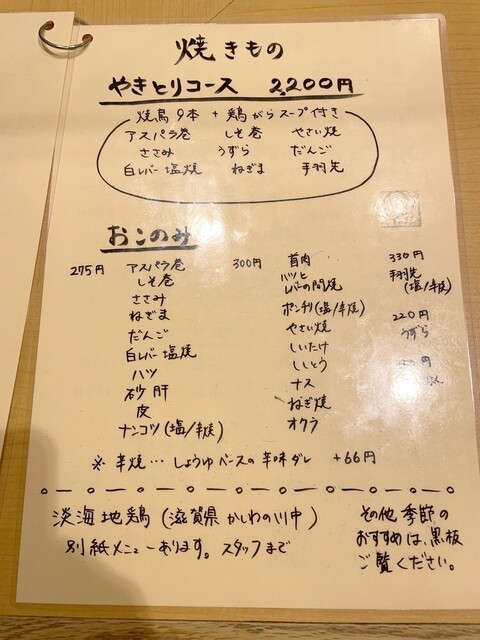 焼きもの
やきとりコース 2,200円
焼鳥9本 + 鶏がらスープ付き
アスパラ巻 しそ巻 やさい焼
ささみ うずら だんご
白レバー塩焼 ねぎま 手羽先
おこのみ
275円 アスパラ巻
しそ巻
ささみ
ねぎま
だんご
白レバー塩焼
ハツ
砂肝
皮
ナンコツ(塩/辛焼)
300円 首肉
ハツと
レバーの間焼
ポンチリ(塩/辛焼)
やさい焼
しいたけ
ししとう
ナス
ねぎ焼
オクラ
330円
手羽先
(塩/辛焼)
220円
うずら
円
※ 辛焼…しょうゆベースの辛味ダレ +66円
淡海地鶏(滋賀県かしわの川中)
別紙メニューあります。スタッフまで
その他季節の
おすすめは、黒板
ご覧ください。